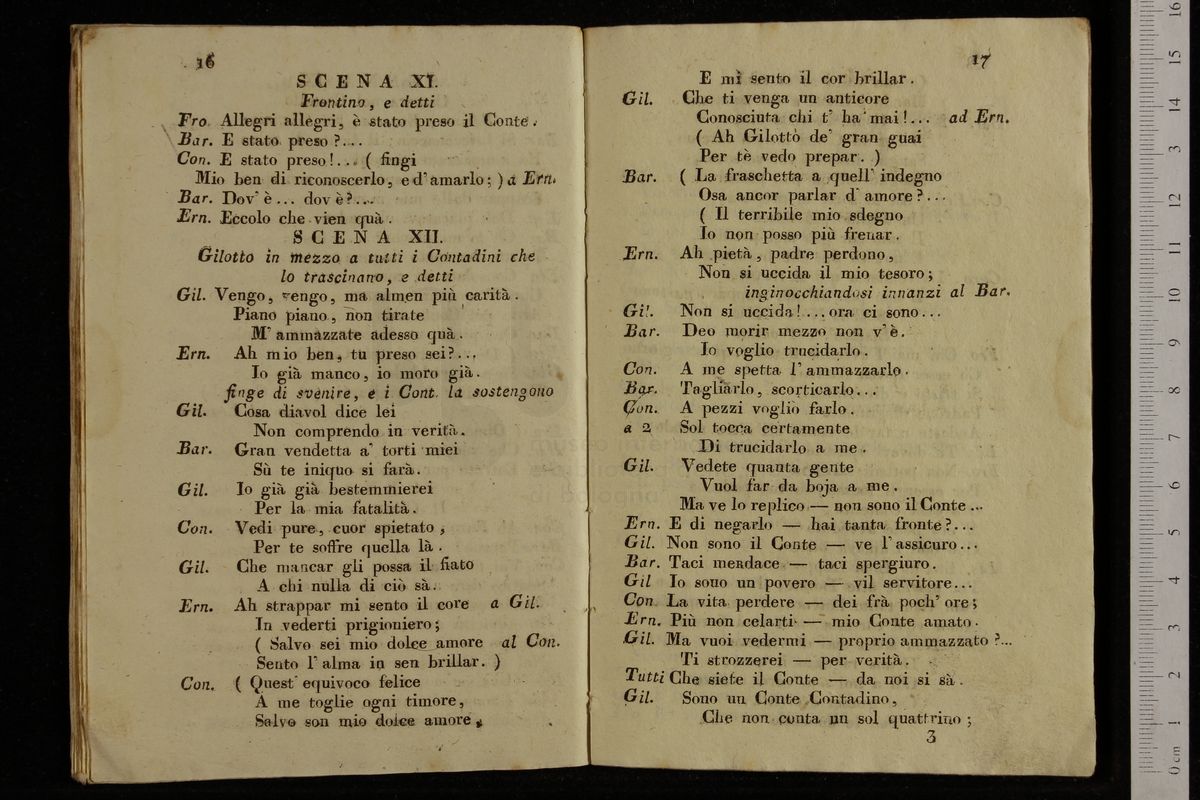 16
SCENA XI.
Frontino, e detti
Fro. Allegri allegri, è stato preso il Conte.
Bar. E stato preso?...
Con. E stato preso!... ( fingi
Mio ben di riconoscerlo, ed'amarlo; ) a Ern.
Bar. Dov' è... dov è?...
Ern. Eccolo che vien quà.
SCENA XII.
Gilotto in mezzo a tutti i Contadini che
lo trascinano, e detti
Gil. Vengo, vengo, ma almen più carità.
Piano piano, non tirate
M' ammazzate adesso quà.
Ern. Ah mio ben, tu preso sei?...
Io già manco, io moro già.
finge di svenire, e i Cont. la sostengono
Gil. Cosa diavol dice lei
Non comprendo in verità.
Bar. Gran vendetta a' torti miei
Sù te iniquo si farà.
Gil. Io già già bestemmierei
Per la mia fatalità.
Con. Vedi pure, cuor spietato,
Per te soffre quella là.
Gil. Che mancar gli possa il fiato
A chi nulla di ciò sà.
Ern. Ah strappar mi sento il core a Gil.
In vederti prigioniero;
( Salvo sei mio dolce amore al Con.
Sento l' alma in sen brillar. )
Con. ( Quest' equivoco felice
A me toglie ogni timore,
Salvo son mio dolce amore,
17
E mi sento il cor brillar.
Gil. Che ti venga un anticore
Conosciuta chi t' ha mai!... ad Ern.
( Ah Gilotto de' gran guai
Per tè vedo prepar. )
Bar. ( La fraschetta a quell' indegno
Osa ancor parlar d' amore?...
( Il terribile mio sdegno
Io non posso più frenar.
Ern. Ah pietà, padre perdono,
Non si uccida il mio tesoro;
inginocchiandosi innanzi al Bar.
Gil. Non si uccida!...ora ci sono...
Bar. Deo morir mezzo non v' è.
Io voglio trucidarlo.
Con. A me spetta l' ammazzarlo.
Bar. Tagliarlo, scorticarlo...
Con. A pezzi voglio farlo.
a 2 Sol tocca certamente
Di trucidarlo a me.
Gil. Vedete quanta gente
Vuol far da boja a me.
Ma ve lo replico — non sono il Conte...
Ern. E di negarlo — hai tanta fronte?...
Gil. Non sono il Conte — ve l' assicuro...
Bar. Taci mendace — taci spergiuro.
Gil Io sono un povero — vil servitore...
Con. La vita perdere — dei frà poch' ore;
Ern. Più non celarti — mio Conte amato.
Gil. Ma vuoi vedermi — proprio ammazzato?...
Ti strozzerei — per verità.
Tutti Che siete il Conte — da noi si sà.
Gil. Sono un Conte Contadino,
Che non conta un sol quattrino;
3